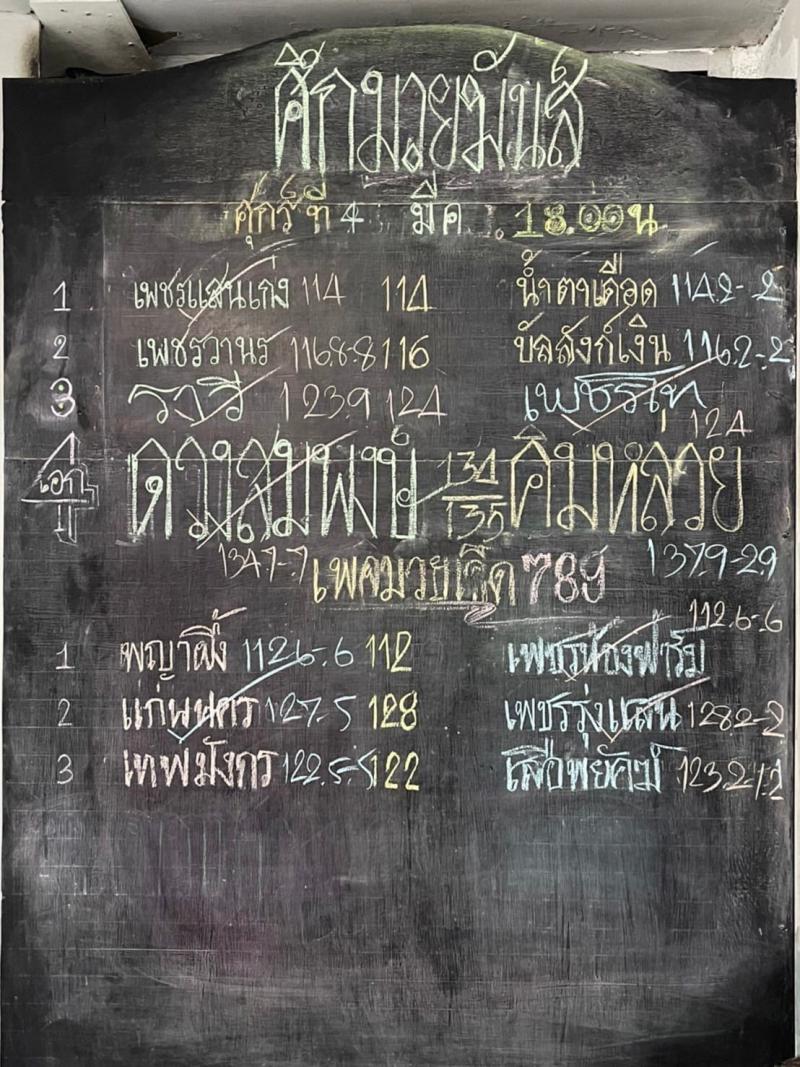 ศึกมวยมันส์
ศุกร์ ที่ 4 มีค. 18.00 น
1 เพชรแสนเก่ง 114 114 น้ำตาเดือด 114.2-2
2 เพชรวานร 116.8-8 116 บัลลังก์เงิน 116.2-2
3 วาวี 123.9 124 เพชร 124
4 เอก ดวงสมพงษ์ 134 135 คิมหลวย
134.7-.7 137.9-2.9
เพลมวยเด็ด 789
112.6-6
1 พญาผึ้ง 112.6-.6 112 เพชรห้องฟาร์ม
2 แก่นนคร 127.5 128 เพชรรุ่งแสน 128.2-2
3 เทพมังกร 122.5-5 122 เสือพยัคฆ์ 123.2-1.2